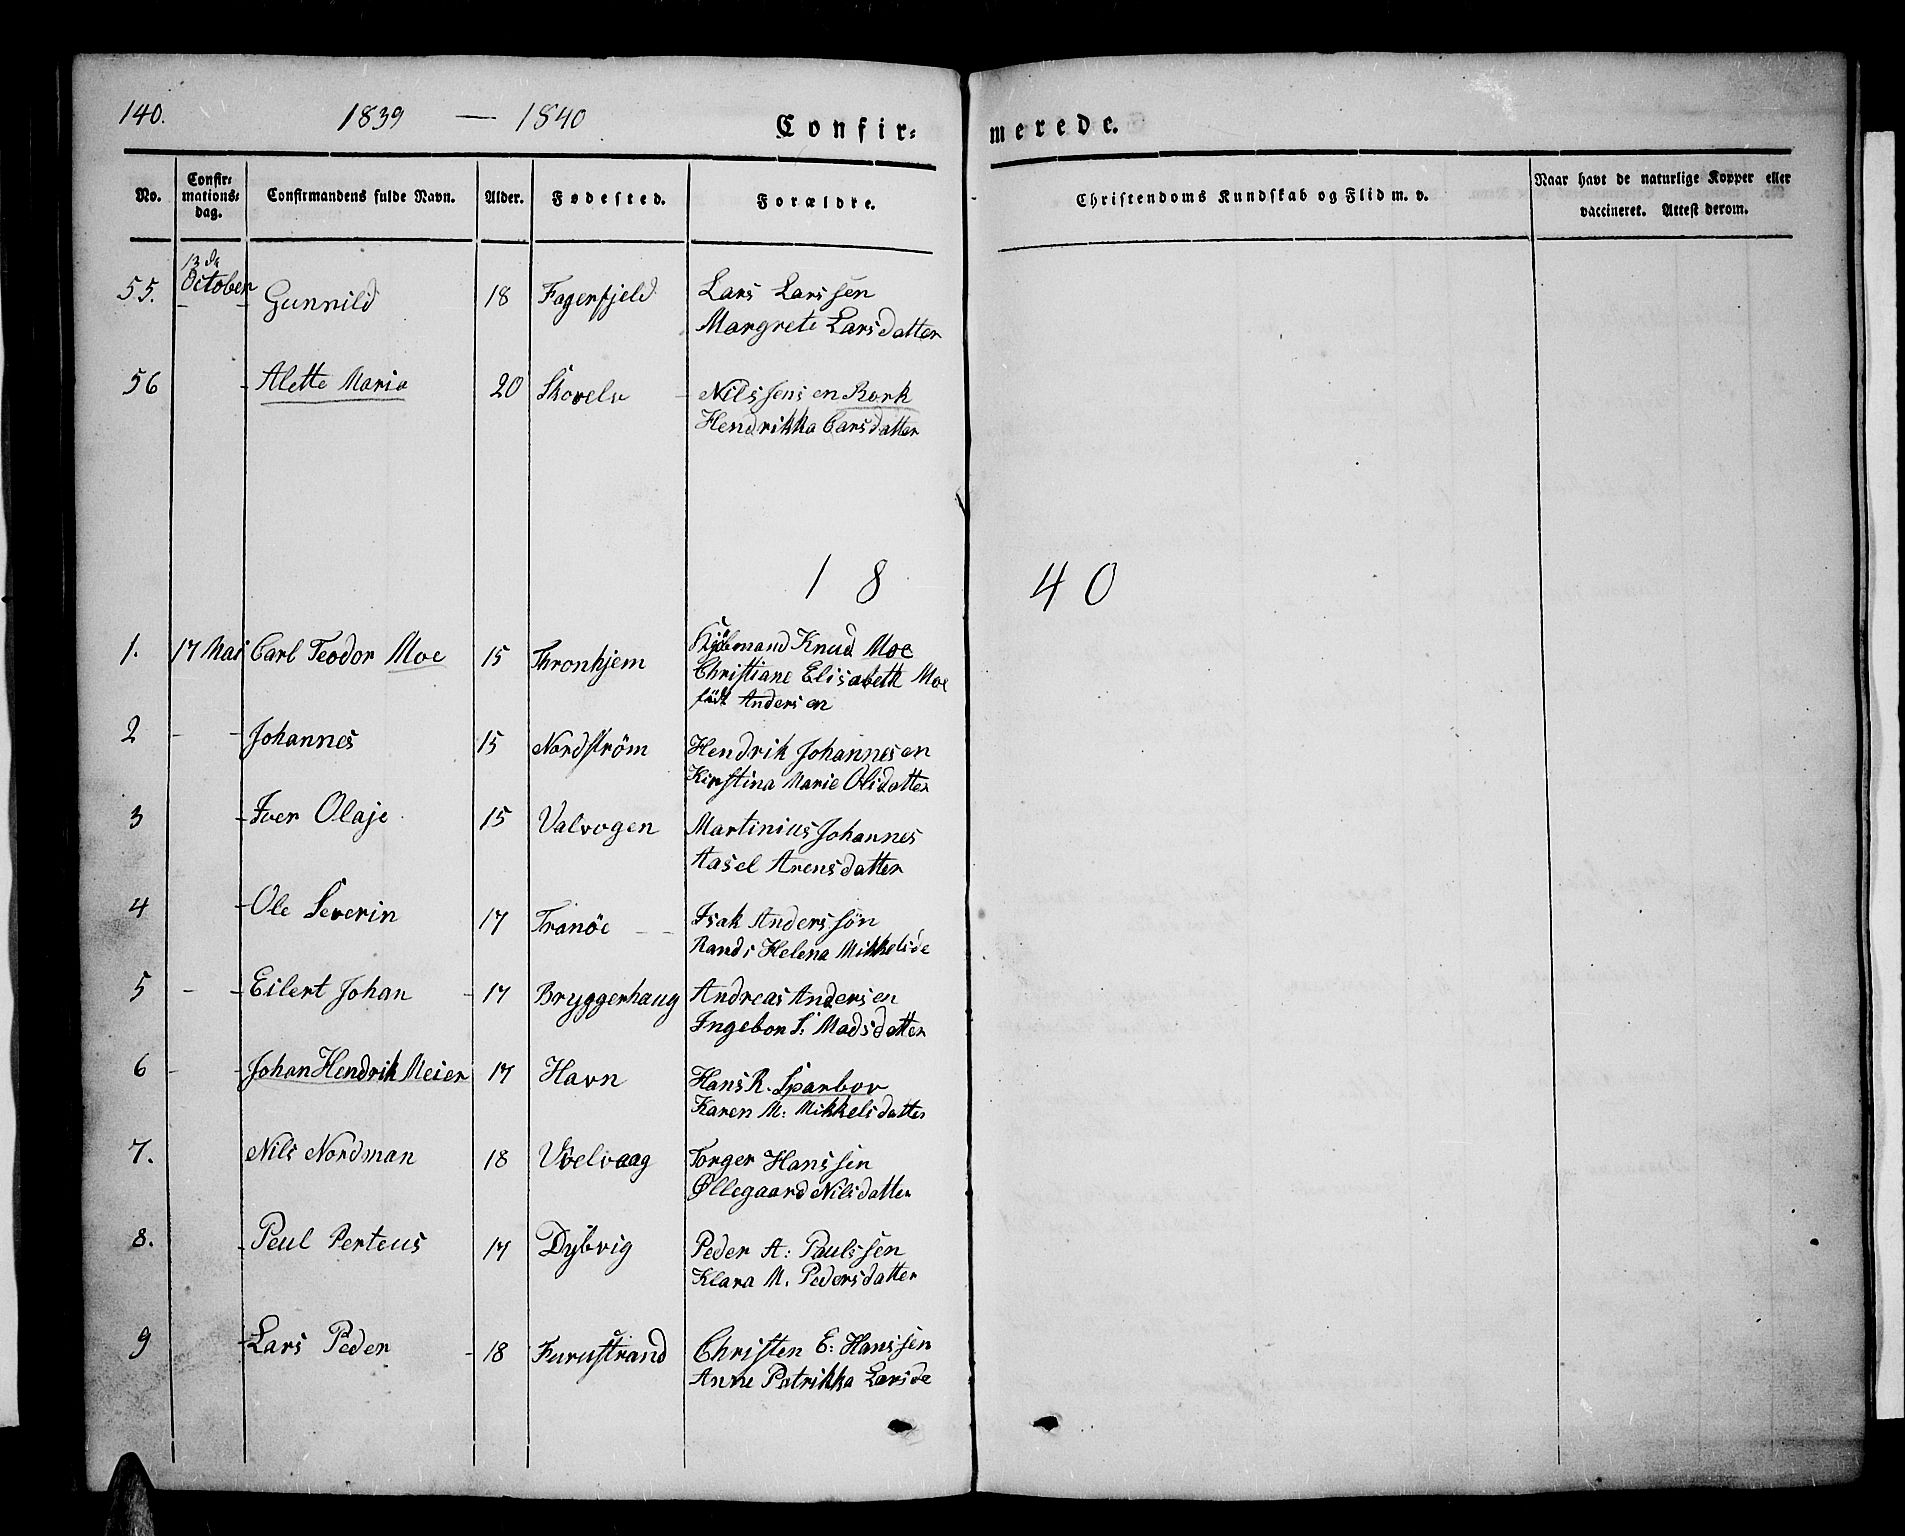 140. 1839 — 1840 Confir-
merede.
No. Confir-mations-dag. Confirmandens fulde Navn. Alder. Fødested. Forældre.
Christendoms Kundskab og Flid m. v. Naar havt de naturlige Kopper eller vaccineret. Attest derom.
55. 13de October Gunnild 18 Fagerfjeld Lars Larssen
Margrete Larsdatter
56 - Alette Maria 20 Skovelv - Nils Jensen Rork
Hendrikka Larsdatter
1840
1. 17 Mai Carl Teodor Moe 15 Thronhjem Kjöbmand Knud Moe
Christiane Elisabeth Moe
födt Andersen
2 - - Johannes 15 Nordström Hendrik Johannesen
Kirstina Marie Olidatter
3 - Iver Olaje 15 Valvogen Martinius Johannes
Aasel Arensdatter
4 - Ole Severin 17 Tranöe - - Isak Anderssön
Randi Helena Mikkelsde
5 - - Eilert Johan - 17 Bryggerhaug Andreas Andersen
Ingebor S: Madsdatter
6 - - Johan Hendrik Meier 17 Havn Hans R. Sparbov
Karen M: Mikkelsdatter
7. Nils Nordman 18 Vælvaag Torger Hanssen
Øllegaard Nilsdatter
8. - Peul Perteus 17 Dybvig Peder A: Paulssen
Klara M. Pedersdatter
9 - Lars Peder - 18 Furustrand Christen E: Hanssen
Anne Patrikka Larsde